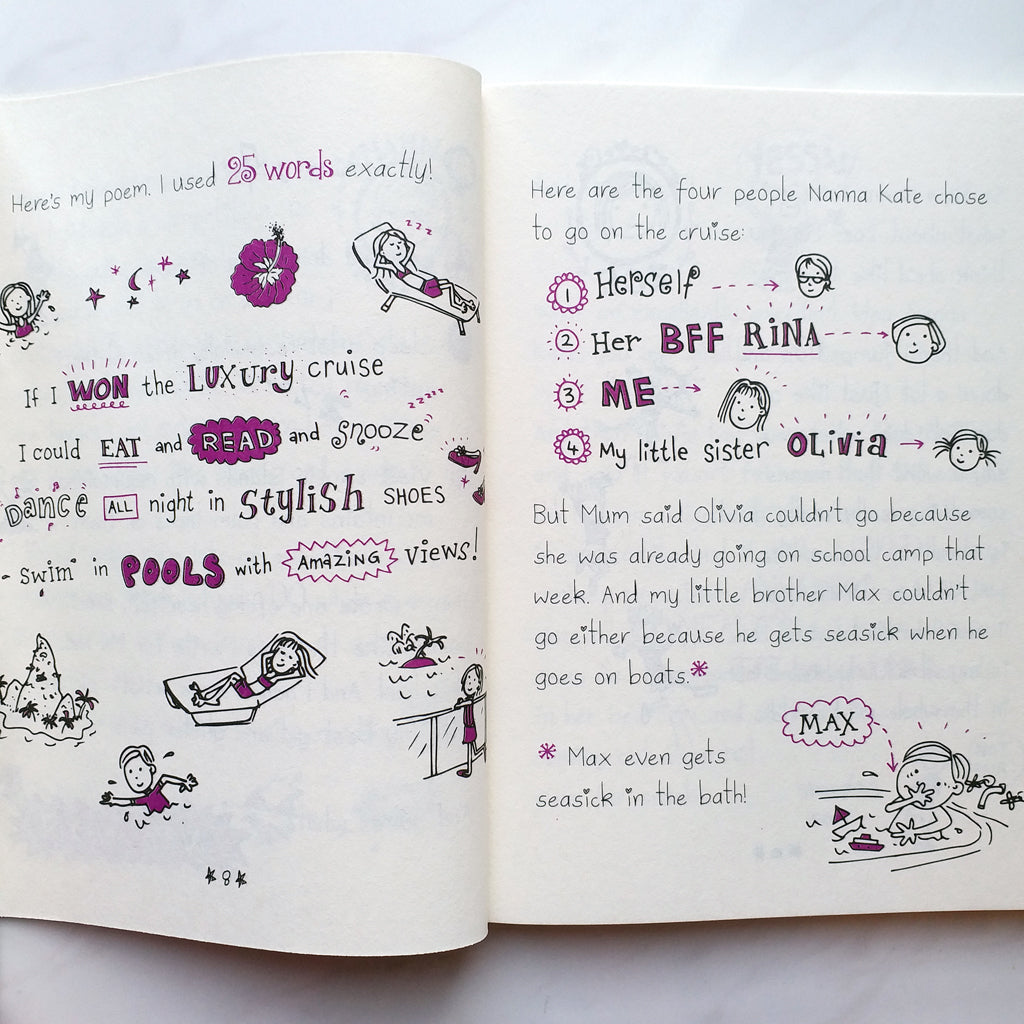 Here's my poem. I used 25 words exactly!
zzz
If I WON the LUXURY cruise
zzzzz
I could EAT and READ and snooze
Dance ALL night in Stylish SHOES
swim in POOLS with AMAZING views!
8
Here are the four people Nanna Kate chose
to go on the cruise:
1 Herself
2 Her BFF RINA
3 ME
4 My little sister OLiViA
But Mum said Olivia couldn't go because
she was already going on school camp that
week. And my little brother Max couldn't
go either because he gets seasick when he
goes on boats.*
MAX
* Max even gets
seasick in the bath!